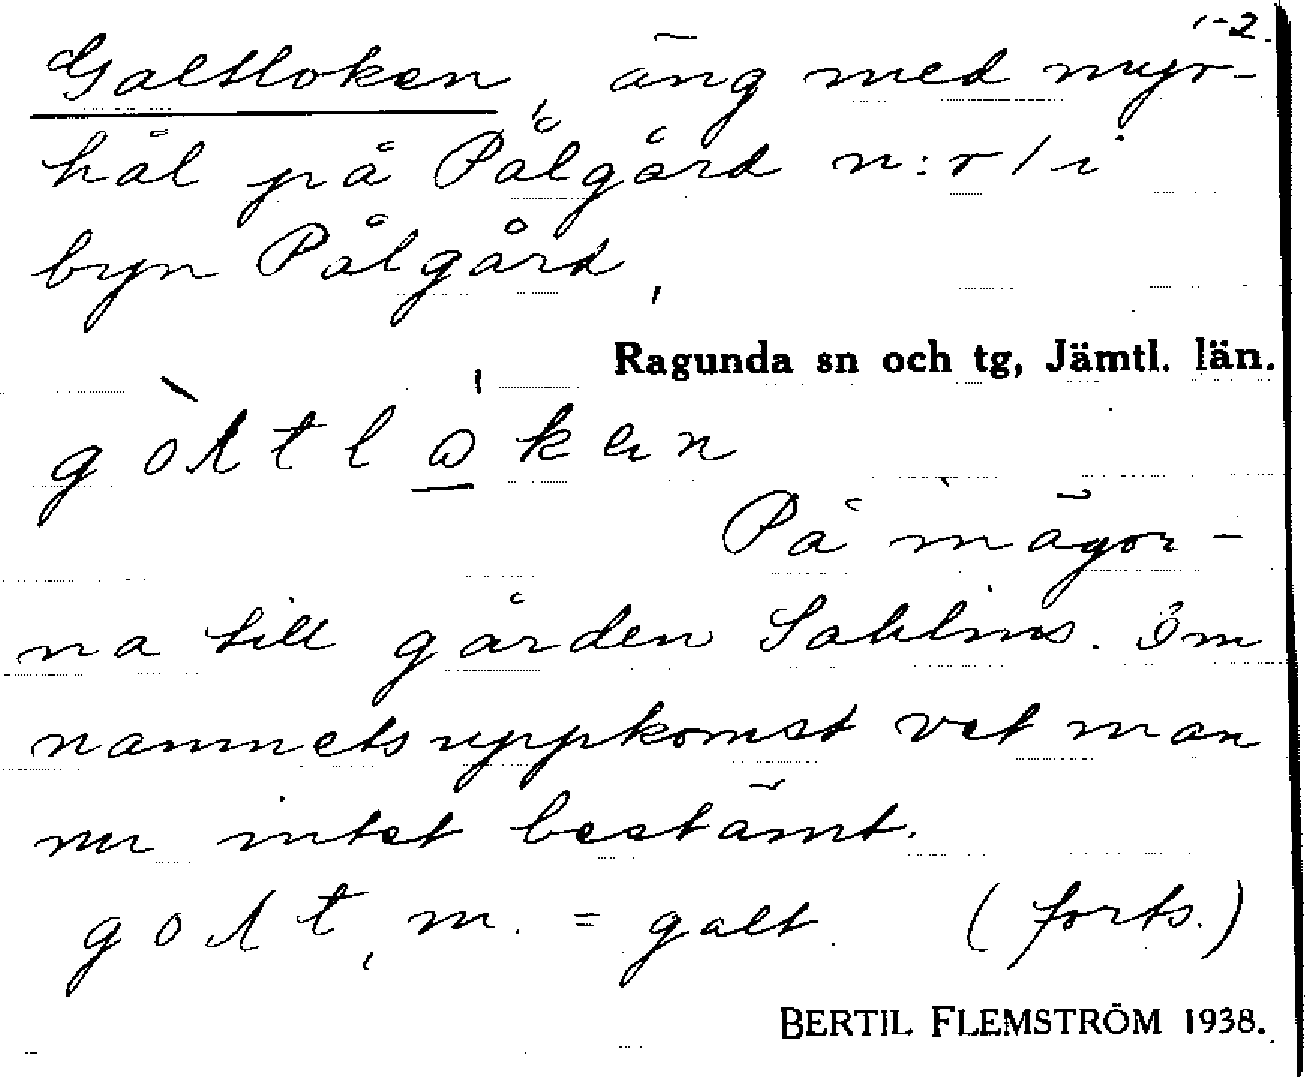 1-2.
Galtloken, äng med myr-
hål på Pålgård n:r 1 i
byn Pålgård,
Ragunda sn och tg, Jämtl. län.
På mägor-
na till gården Sahlins. Om
namnets uppkomst vet man
nu intet bestämt.
m. = galt. (forts.)
BERTIL FLEMSTRÖM 1938.